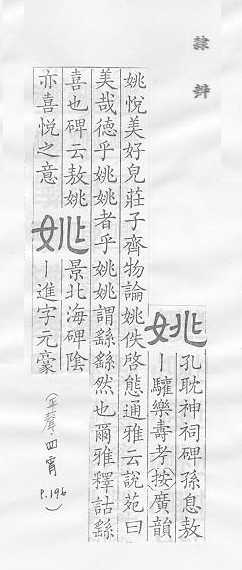 隸辨
姚 孔耽神祠碑孫息敖
丨驩樂壽孝按廣韻
姚悅美好皃莊子齊物論姚佚啓態通雅云說苑曰
美哉德乎姚姚者乎姚姚謂繇繇然也爾雅釋詁繇
喜也碑云敖姚
亦喜悅之意
姚 景北海碑陰
丨進字元豪
(平聲四宵
P.196)